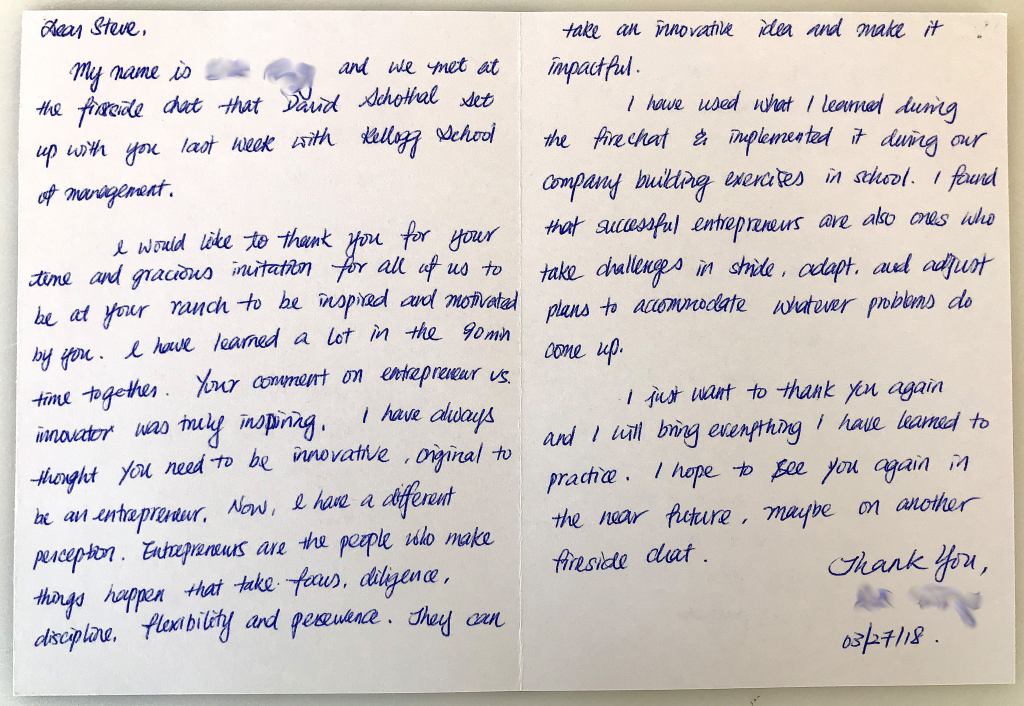 Dear Steve,
My name is and we met at
the fireside chat that David Schothal set
up with you last week with Kellogg School
of management.
I would like to thank you for your
time and gracious invitation for all of us to
be at your ranch to be inspired and motivated
by you. I have learned a lot in the 90 min
time together. Your comment on entrepreneur vs.
innovator was truly inspiring. I have always
thought you need to be innovative, original to
be an entrepreneur. Now, I have a different
perception. Entrepreneurs are the people who make
things happen that take focus, diligence,
discipline, flexibility and perseverance. They can
take an innovative idea and make it
impactful.
I have used what I learned during
the firechat & implemented it during our
company building exercises in school. I found
that successful entrepreneurs are also ones who
take challenges in stride, adapt, and adjust
plans to accommodate whatever problems do
come up.
I just want to thank you again
and I will bring everything I have learned to
practice. I hope to see you again in
the near future, maybe on another
fireside chat.
Thank You,
03/27/18.